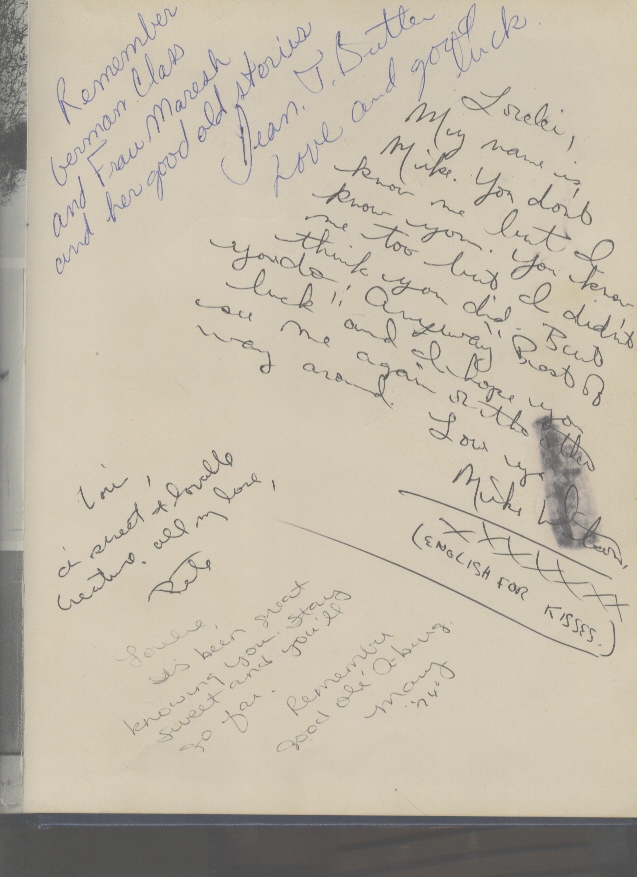 Remember
German Class
and Frau Maresh
and her good old stories
Jean. T. Butler
Love and good
luck
My name is
Mike. You don't
know me but I
know you. You know
me too but I didn't
think you did. But
you do!! Anyway Best of
luck and I hope you
see me again or the other
way around.
Love ya
Mike
XXXXXX
(ENGLISH FOR KISSES.)
Lori,
a sweet & lovable
creature. all my love,
Pete
Louise,
It's been great
knowing you. Stay
sweet and you'll
go far.
Remember
good ole'
Mary
"74"